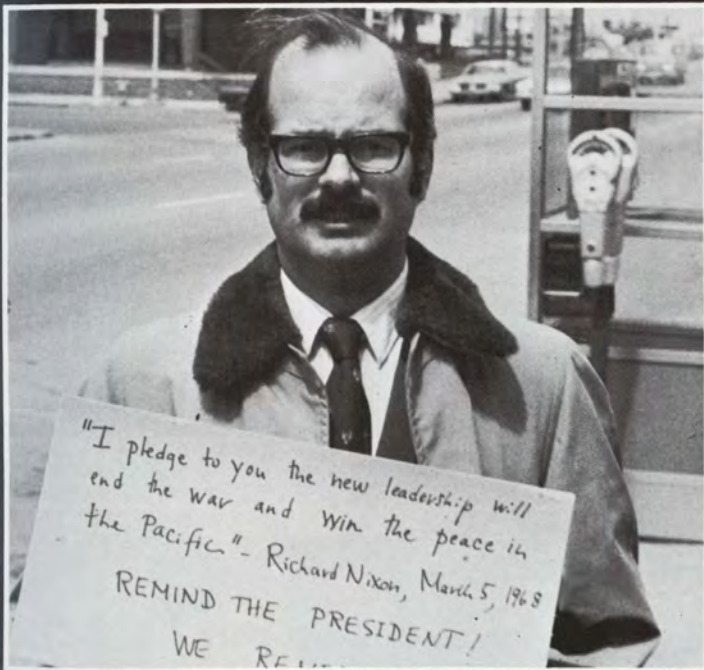 "I pledge to you the new leadership will
end the war and win the peace in
the Pacific" - Richard Nixon, March 5, 1968
REMIND THE PRESIDENT!
WE